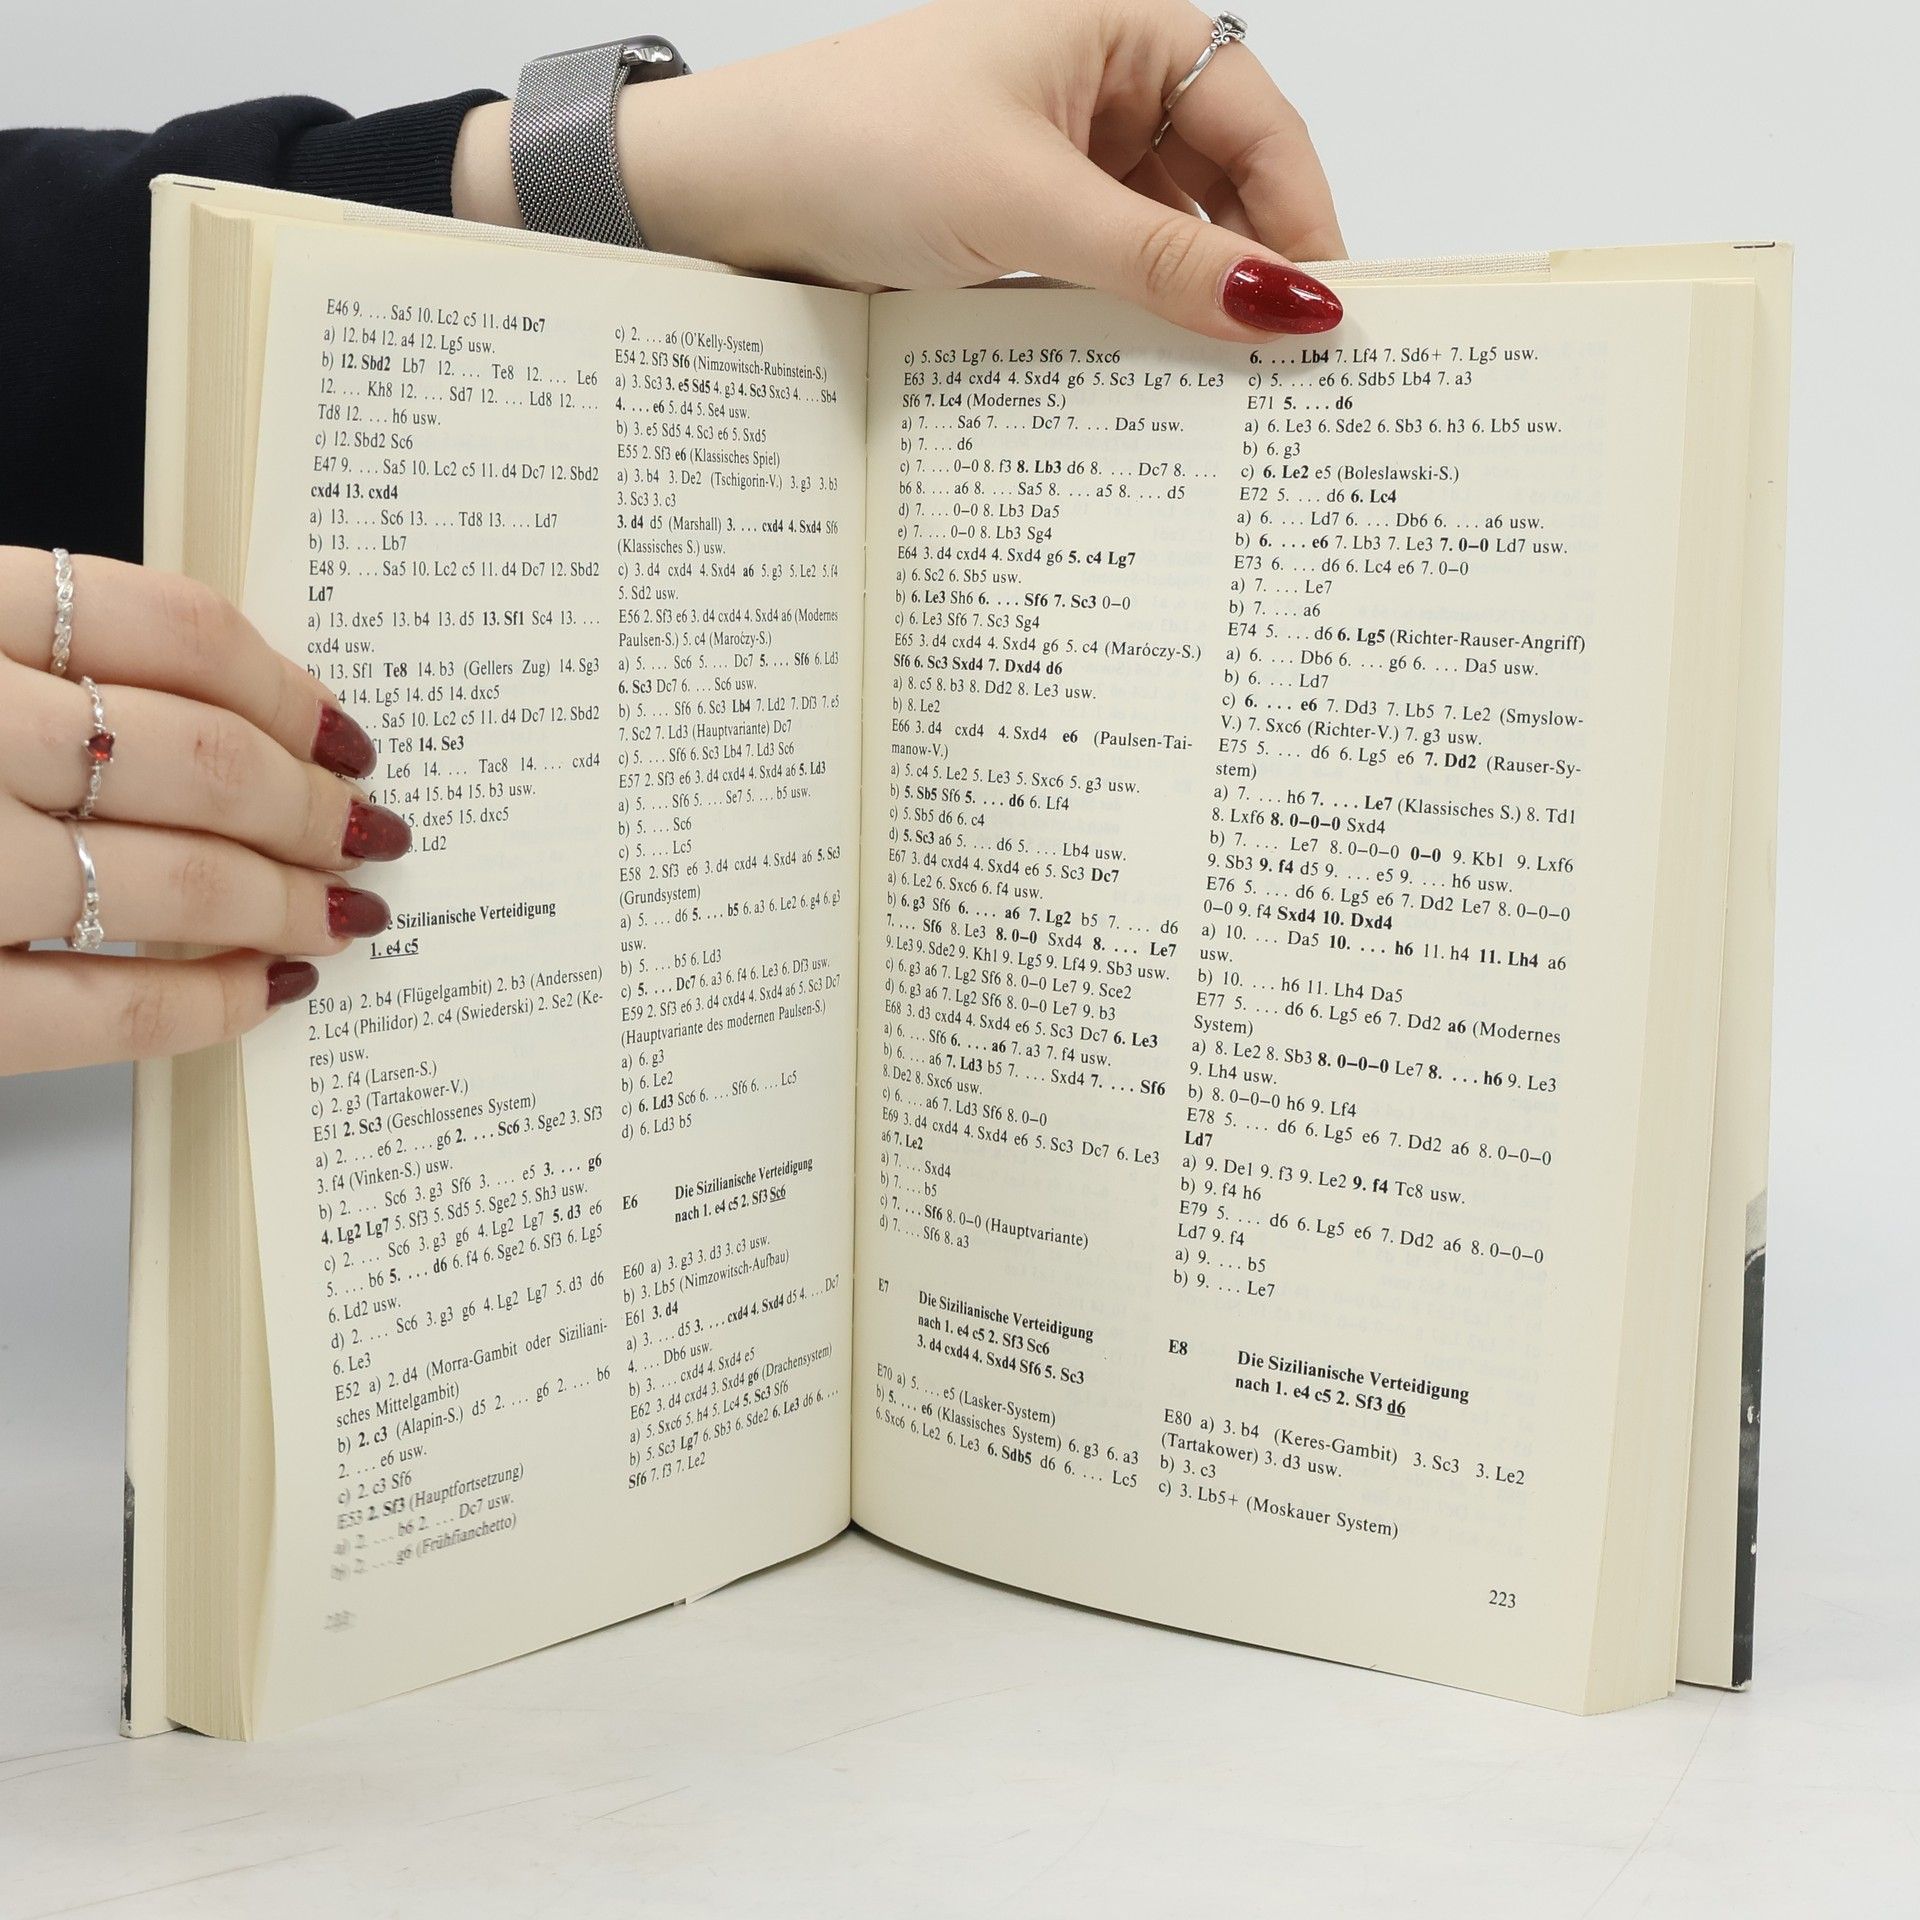 E46 9. ... Sa5 10. Lc2 c5 11. d4 Dc7
a) 12. b4 12. a4 12. Lg5 usw.
b) 12. Sbd2 Lb7 12. ... Te8 12. ... Le6
12. ... Kh8 12. ... Sd7 12. ... Ld8 12. ...
Td8 12. ... h6 usw.
c) 12. Sbd2 Sc6
E47 9. ... Sa5 10. Lc2 c5 11. d4 Dc7 12. Sbd2
cxd4 13. cxd4
a) 13. ... Sc6 13. ... Td8 13. ... Ld7
b) 13. ... Lb7
E48 9. ... Sa5 10. Lc2 c5 11. d4 Dc7 12. Sbd2
Ld7
a) 13. dxe5 13. b4 13. d5 13. Sf1 Sc4 13. ...
cxd4 usw.
b) 13. Sf1 Te8 14. b3 (Gellers Zug) 14. Sg3
14. Lg5 14. d5 14. dxc5
Sa5 10. Lc2 c5 11. d4 Dc7 12. Sbd2
Te8 14. Se3
Le6 14. ... Tac8 14. ... cxd4
15. a4 15. b4 15. b3 usw.
15. dxe5 15. dxc5
Ld2
Sizilianische Verteidigung
1. e4 c5
E50 a) 2. b4 (Flügelgambit) 2. b3 (Anderssen)
2. Lc4 (Philidor) 2. c4 (Swiederski) 2. Se2 (Ke-
res) usw.
b) 2. f4 (Larsen-S.)
c) 2. g3 (Tartakower-V.)
E51 2. Sc3 (Geschlossenes System)
a) 2. ... e6 2. ... g6 2. ... Sc6 3. Sge2 3. Sf3
3. f4 (Vinken-S.) usw.
b) 2. ... Sc6 3. g3 Sf6 3. ... e5 3. ... g6
4. Lg2 Lg7 5. Sf3 5. Sd5 5. Sge2 5. Sh3 usw.
c) 2. ... Sc6 3. g3 g6 4. Lg2 Lg7 5. d3 e6
5. ... b6 5. ... d6 6. f4 6. Sge2 6. Sf3 6. Lg5
6. Ld2 usw.
d) 2. ... Sc6 3. g3 g6 4. Lg2 Lg7 5. d3 d6
6. Le3
E52 a) 2. d4 (Morra-Gambit oder Siziliani-
sches Mittelgambit)
b) 2. c3 (Alapin-S.) d5 2. ... g6 2. ... b6
2. ... e6 usw.
c) 2. c3 Sf6
E53 2. Sf3 (Hauptfortsetzung)
a) 2. ... b6 2. ... Dc7 usw.
b) 2. ... g6 (Frühfianchetto)
c) 2. ... a6 (O'Kelly-System)
E54 2. Sf3 Sf6 (Nimzowitsch-Rubinstein-S.)
a) 3. Sc3 3. e5 Sd5 4. g3 4. Sc3 Sxc3 4. ... Sb4
4. ... e6 5. d4 5. Se4 usw.
b) 3. e5 Sd5 4. Sc3 e6 5. Sxd5
E55 2. Sf3 e6 (Klassisches Spiel)
a) 3. b4 3. De2 (Tschigorin-V.) 3. g3 3. b3
3. Sc3 3. c3
3. d4 d5 (Marshall) 3. ... cxd4 4. Sxd4 Sf6
(Klassisches S.) usw.
c) 3. d4 cxd4 4. Sxd4 a6 5. g3 5. Le2 5. f4
5. Sd2 usw.
E56 2. Sf3 e6 3. d4 cxd4 4. Sxd4 a6 (Modernes
Paulsen-S.) 5. c4 (Maroczy-S.)
a) 5. ... Sc6 5. ... Dc7 5. ... Sf6 6. Ld3
6. Sc3 Dc7 6. ... Sc6 usw.
b) 5. ... Sf6 6. Sc3 Lb4 7. Ld2 7. Df3 7. e5
7. Sc2 7. Ld3 (Hauptvariante) Dc7
c) 5. ... Sf6 6. Sc3 Lb4 7. Ld3 Sc6
E57 2. Sf3 e6 3. d4 cxd4 4. Sxd4 a6 5. Ld3
a) 5. ... Sf6 5. ... Se7 5. ... b5 usw.
b) 5. ... Sc6
c) 5. ... Lc5
E58 2. Sf3 e6 3. d4 cxd4 4. Sxd4 a6 5. Sc3
(Grundsystem)
a) 5. ... d6 5. ... b5 6. a3 6. Le2 6. g4 6. g3
usw.
b) 5. ... b5 6. Ld3
c) 5. ... Dc7 6. a3 6. f4 6. Le3 6. Df3 usw.
E59 2. Sf3 e6 3. d4 cxd4 4. Sxd4 a6 5. Sc3 Dc7
(Hauptvariante des modernen Paulsen-S.)
a) 6. g3
b) 6. Le2
c) 6. Ld3 Sc6 6. ... Sf6 6. ... Lc5
d) 6. Ld3 b5
E6 Die Sizilianische Verteidigung
nach 1. e4 c5 2. Sf3 Sc6
E60 a) 3. g3 3. d3 3. c3 usw.
b) 3. Lb5 (Nimzowitsch-Aufbau)
E61 3. d4
a) 3. ... d5 3. ... cxd4 4. Sxd4 d5 4. ... Dc7
4. ... Db6 usw.
b) 3. ... cxd4 4. Sxd4 e5
E62 3. d4 cxd4 3. Sxd4 g6 (Drachensystem)
a) 5. Sxc6 5. h4 5. Lc4 5. Sc3 Sf6
b) 5. Sc3 Lg7 6. Sb3 6. Sde2 6. Le3 d6 6. ...
Sf6 7. f3 7. Le2
c) 5. Sc3 Lg7 6. Le3 Sf6 7. Sxc6
E63 3. d4 cxd4 4. Sxd4 g6 5. Sc3 Lg7 6. Le3
Sf6 7. Lc4 (Modernes S.)
a) 7. ... Sa6 7. ... Dc7 7. ... Da5 usw.
b) 7. ... d6
c) 7. ... 0–0 8. f3 8. Lb3 d6 8. ... Dc7 8. ...
b6 8. ... a6 8. ... Sa5 8. ... a5 8. ... d5
d) 7. ... 0–0 8. Lb3 Da5
e) 7. ... 0–0 8. Lb3 Sg4
E64 3. d4 cxd4 4. Sxd4 g6 5. c4 Lg7
a) 6. Sc2 6. Sb5 usw.
b) 6. Le3 Sh6 6. ... Sf6 7. Sc3 0–0
c) 6. Le3 Sf6 7. Sc3 Sg4
E65 3. d4 cxd4 4. Sxd4 g6 5. c4 (Maróczy-S.)
Sf6 6. Sc3 Sxd4 7. Dxd4 d6
a) 8. c5 8. b3 8. Dd2 8. Le3 usw.
b) 8. Le2
E66 3. d4 cxd4 4. Sxd4 e6 (Paulsen-Tai-
manow-V.)
a) 5. c4 5. Le2 5. Le3 5. Sxc6 5. g3 usw.
b) 5. Sb5 Sf6 5. ... d6 6. Lf4
c) 5. Sb5 d6 6. c4
d) 5. Sc3 a6 5. ... d6 5. ... Lb4 usw.
E67 3. d4 cxd4 4. Sxd4 e6 5. Sc3 Dc7
a) 6. Le2 6. Sxc6 6. f4 usw.
b) 6. g3 Sf6 6. ... a6 7. Lg2 b5 7. ... d6
7. ... Sf6 8. Le3 8. 0–0 Sxd4 8. ... Le7
9. Le3 9. Sde2 9. Kh1 9. Lg5 9. Lf4 9. Sb3 usw.
c) 6. g3 a6 7. Lg2 Sf6 8. 0–0 Le7 9. Sce2
d) 6. g3 a6 7. Lg2 Sf6 8. 0–0 Le7 9. b3
E68 3. d3 cxd4 4. Sxd4 e6 5. Sc3 Dc7 6. Le3
a) 6. ... Sf6 6. ... a6 7. a3 7. f4 usw.
b) 6. ... a6 7. Ld3 b5 7. ... Sxd4 7. ... Sf6
8. De2 8. Sxc6 usw.
c) 6. ... a6 7. Ld3 Sf6 8. 0–0
E69 3. d4 cxd4 4. Sxd4 e6 5. Sc3 Dc7 6. Le3
a6 7. Le2
a) 7. ... Sxd4
b) 7. ... b5
c) 7. ... Sf6 8. 0–0 (Hauptvariante)
d) 7. ... Sf6 8. a3
E7 Die Sizilianische Verteidigung
nach 1. e4 c5 2. Sf3 Sc6
3. d4 cxd4 4. Sxd4 Sf6 5. Sc3
E70 a) 5. ... e5 (Lasker-System)
b) 5. ... e6 (Klassisches System) 6. g3 6. a3
6. Sxc6 6. Le2 6. Le3 6. Sdb5 d6 6. ... Lc5
6. ... Lb4 7. Lf4 7. Sd6+ 7. Lg5 usw.
c) 5. ... e6 6. Sdb5 Lb4 7. a3
E71 5. ... d6
a) 6. Le3 6. Sde2 6. Sb3 6. h3 6. Lb5 usw.
b) 6. g3
c) 6. Le2 e5 (Boleslawski-S.)
E72 5. ... d6 6. Lc4
a) 6. ... Ld7 6. ... Db6 6. ... a6 usw.
b) 6. ... e6 7. Lb3 7. Le3 7. 0–0 Ld7 usw.
E73 6. ... d6 6. Lc4 e6 7. 0–0
a) 7. ... Le7
b) 7. ... a6
E74 5. ... d6 6. Lg5 (Richter-Rauser-Angriff)
a) 6. ... Db6 6. ... g6 6. ... Da5 usw.
b) 6. ... Ld7
c) 6. ... e6 7. Dd3 7. Lb5 7. Le2 (Smyslow-
V.) 7. Sxc6 (Richter-V.) 7. g3 usw.
E75 5. ... d6 6. Lg5 e6 7. Dd2 (Rauser-Sy-
stem)
a) 7. ... h6 7. ... Le7 (Klassisches S.) 8. Td1
8. Lxf6 8. 0–0–0 Sxd4
b) 7. ... Le7 8. 0–0–0 0–0 9. Kb1 9. Lxf6
9. Sb3 9. f4 d5 9. ... e5 9. ... h6 usw.
E76 5. ... d6 6. Lg5 e6 7. Dd2 Le7 8. 0–0–0
0–0 9. f4 Sxd4 10. Dxd4
a) 10. ... Da5 10. ... h6 11. h4 11. Lh4 a6
usw.
b) 10. ... h6 11. Lh4 Da5
E77 5. ... d6 6. Lg5 e6 7. Dd2 a6 (Modernes
System)
a) 8. Le2 8. Sb3 8. 0–0–0 Le7 8. ... h6 9. Le3
9. Lh4 usw.
b) 8. 0–0–0 h6 9. Lf4
E78 5. ... d6 6. Lg5 e6 7. Dd2 a6 8. 0–0–0
Ld7
a) 9. De1 9. f3 9. Le2 9. f4 Tc8 usw.
b) 9. f4 h6
E79 5. ... d6 6. Lg5 e6 7. Dd2 a6 8. 0–0–0
Ld7 9. f4
a) 9. ... b5
b) 9. ... Le7
E8 Die Sizilianische Verteidigung
nach 1. e4 c5 2. Sf3 d6
E80 a) 3. b4 (Keres-Gambit) 3. Sc3 3. Le2
(Tartakower) 3. d3 usw.
b) 3. c3
c) 3. Lb5+ (Moskauer System)
223